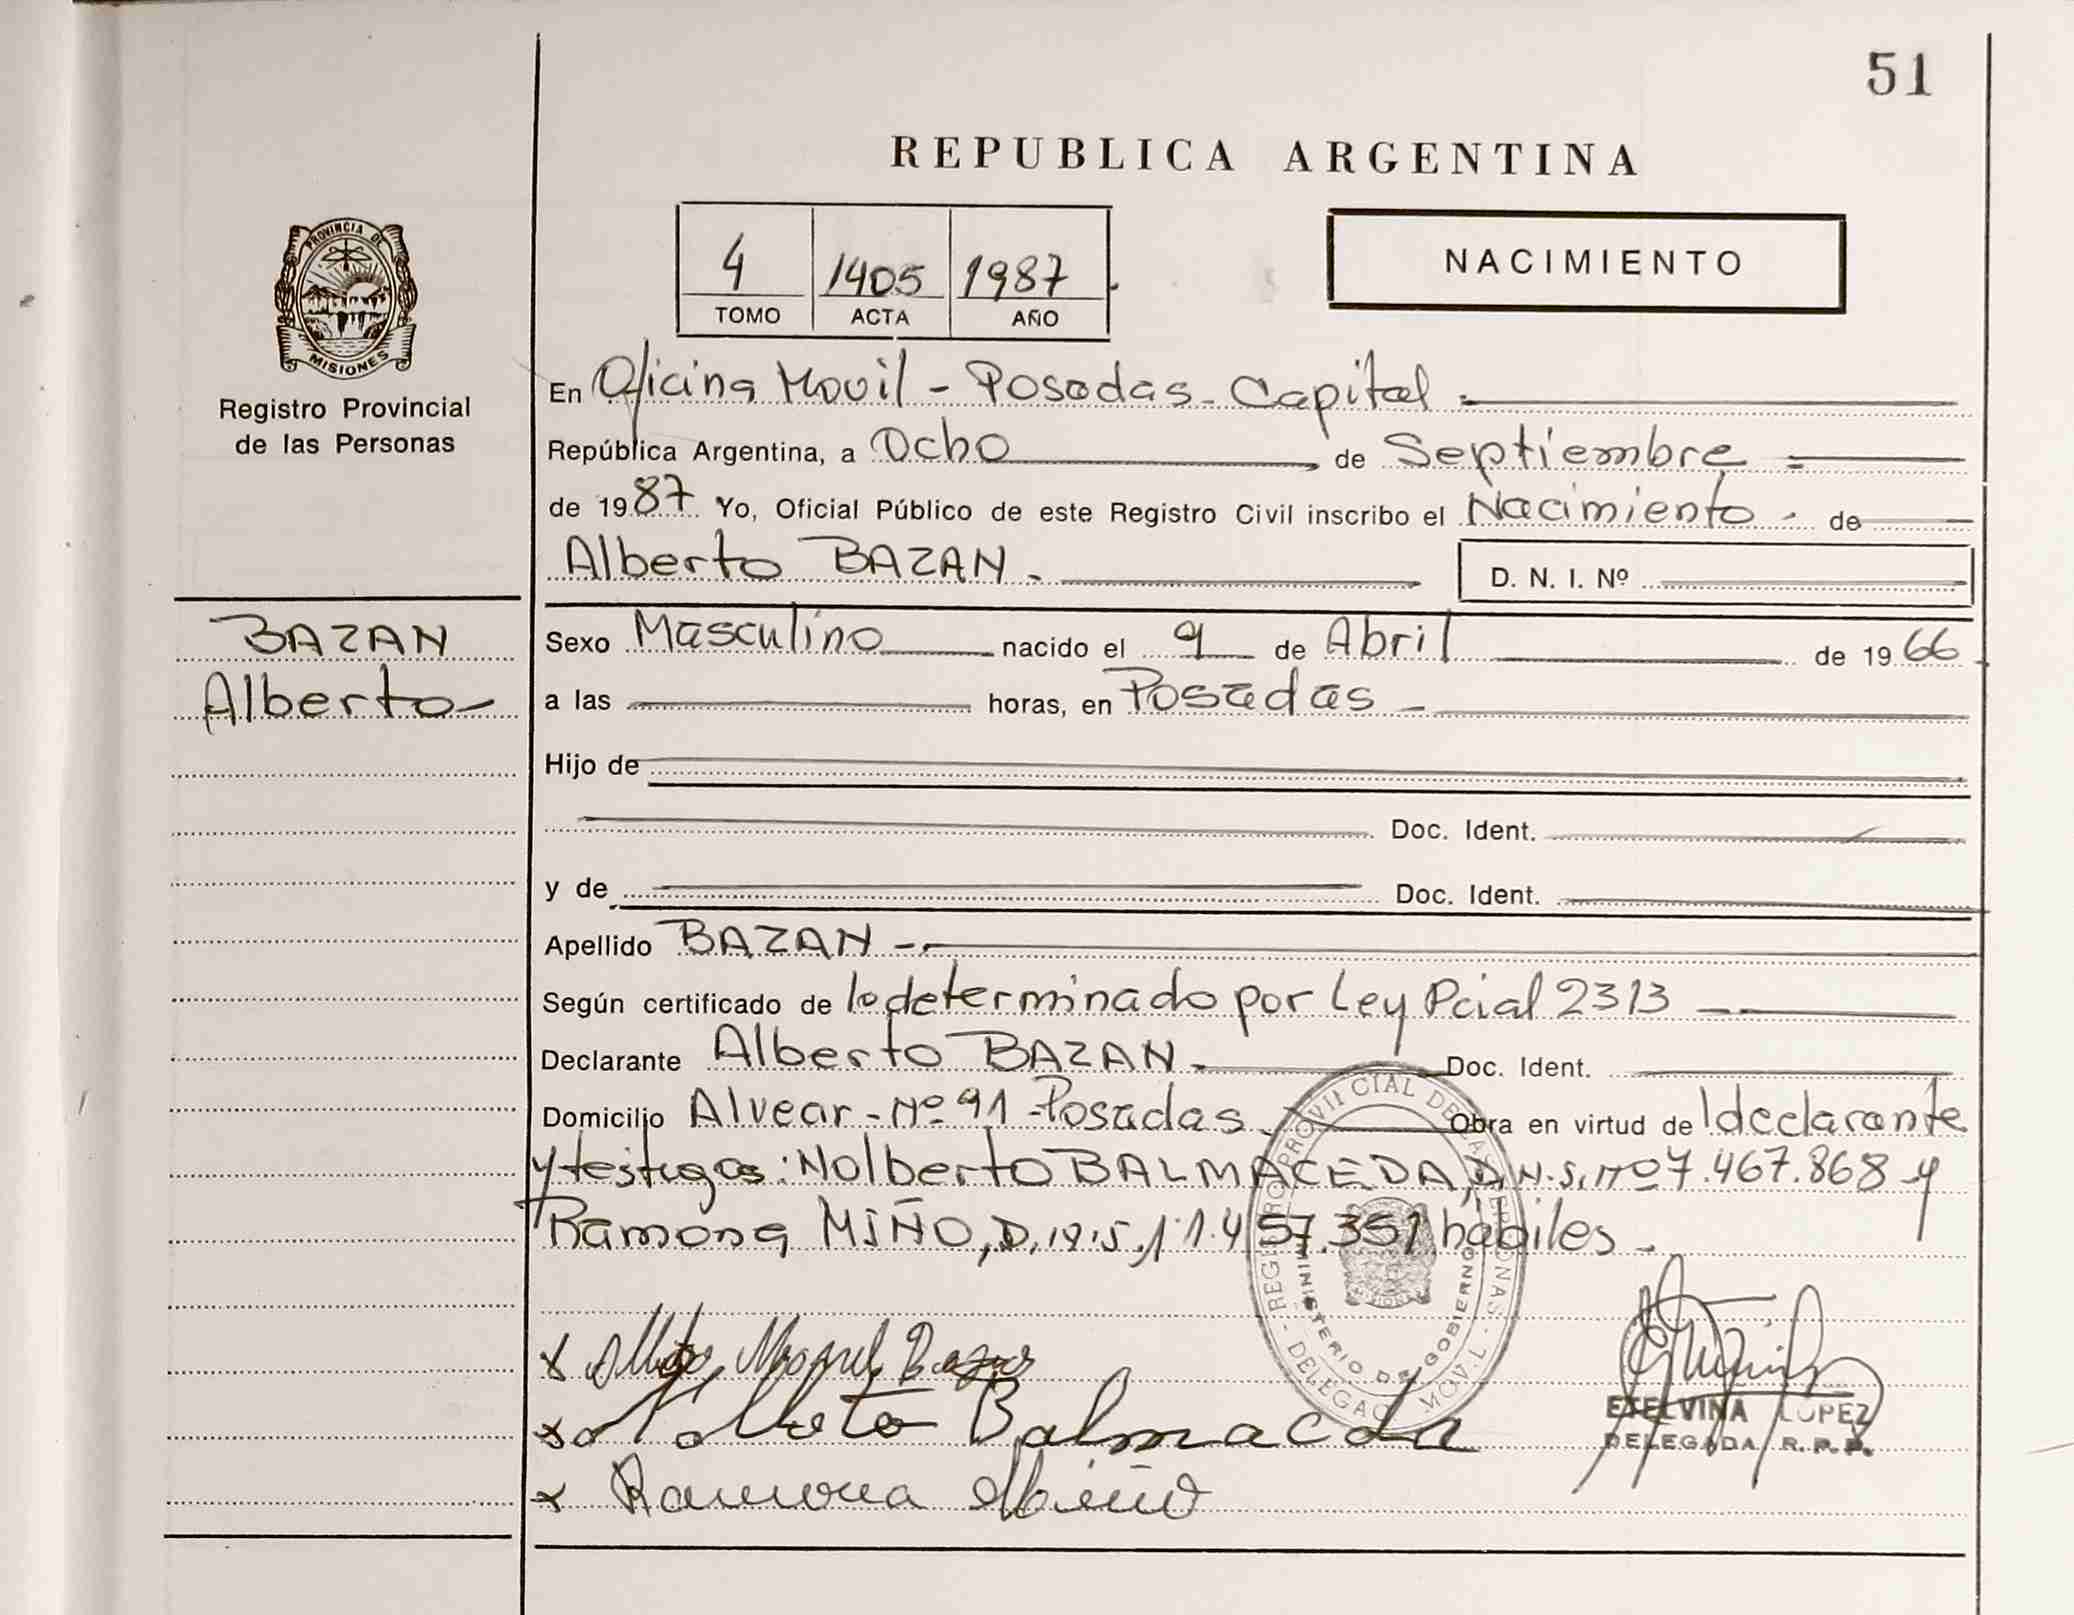 51
REPUBLICA ARGENTINA
4 1405 1987
TOMO ACTA AÑO
NACIMIENTO
PROVINCIA DE
MISIONES
Registro Provincial
de las Personas
En Oficina Movil - Posadas - Capital
República Argentina, a Ocho de Septiembre
de 1987 Yo, Oficial Público de este Registro Civil inscribo el Nacimiento - de
Alberto BAZAN. D. N. I. Nº
BAZAN
Alberto
Sexo Masculino nacido el 9 de Abril de 1966
a las horas, en Posadas
Hijo de
Doc. Ident.
y de Doc. Ident.
Apellido BAZAN
Según certificado de lo determinado por Ley Pcial 2313
Declarante Alberto BAZAN Doc. Ident.
Domicilio Alvear - Nº 91 - Posadas Obra en virtud de l declarante
y testigos: Nolberto BALMACEDA, D.N.I. Nº 7.467.868 y
Ramona MIÑO, D.N.I. 11.457.351 hábiles.
REGISTRO PROVINCIAL DE LAS PERSONAS - DELEGAC MOVIL
MINISTERIO DE GOBIERNO
x Alberto Miguel Bazan
x Nolberto Balmaceda
x Ramona Miño
ETELVINA LOPEZ
DELEGADA R. P. P.